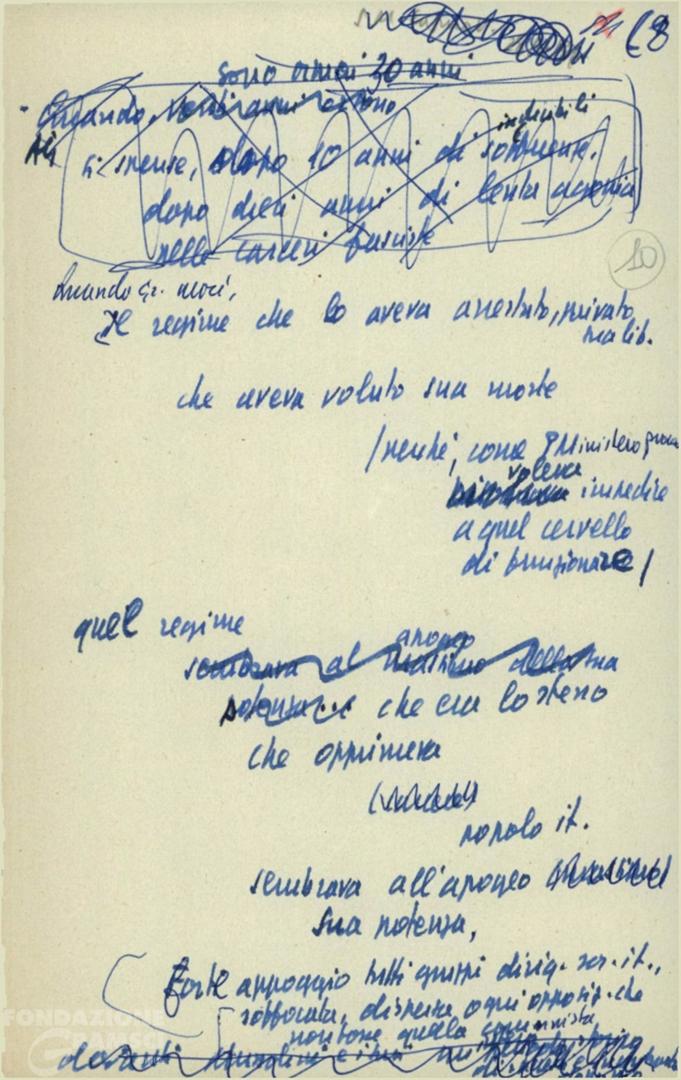 68
sono ormai 20 anni
Quando, venti anni or sono
si spense, dopo 10 anni di indicibili sofferenze,
dopo dieci anni di lenta agonia
nelle carceri fasciste
10
Quando Gr. morì,
Il regime che lo aveva arrestato, privato
sua lib.
che aveva voluto sua morte
/perché, come P Ministero
voleva impedire
a quel cervello
di funzionare/
quel regime
sembrava al massimo apogeo della sua
potenza... che era lo stesso
che opprimeva
popolo it.
sembrava all'apogeo
sua potenza,
Forte appoggio tutti gruppi dirig. soc. it.,
soffocata, dispersa ogni opposiz. che
non fosse quella comunista
davanti
FONDAZIONE
GRAMSCI